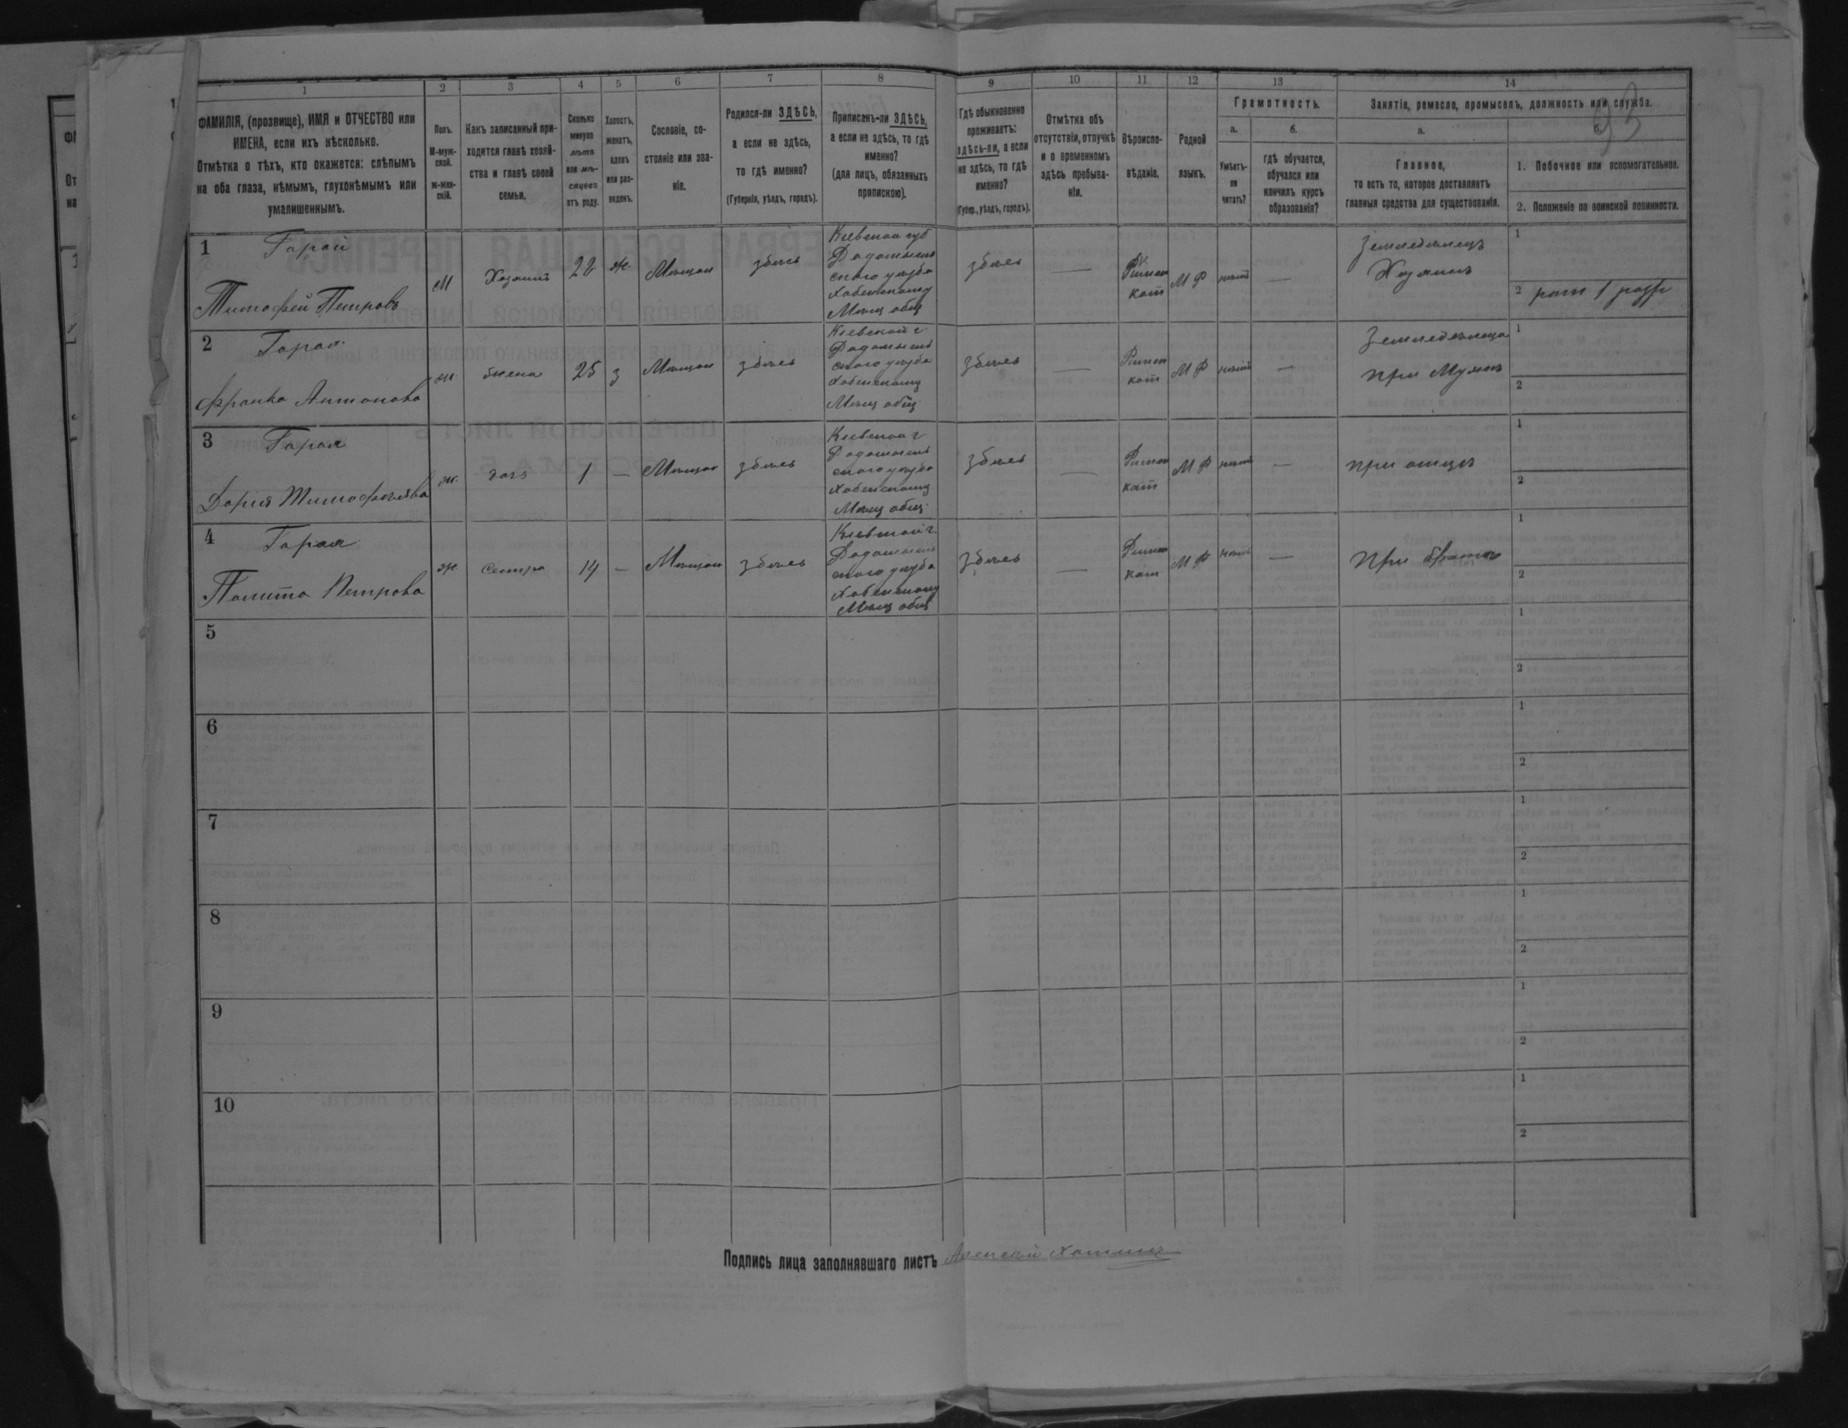 93
1 2 3 4 5 6 7 8 9 10 11 12 13 14
ФАМИЛІЯ, (прозвище), ИМЯ и ОТЧЕСТВО или ИМЕНА, если ихъ нѣсколько.
Отмѣтка о тѣхъ, кто окажется: слѣпымъ на оба глаза, нѣмымъ, глухонѣмымъ или умалишеннымъ.
Полъ. М-мужской. ж-женскій.
Какъ записанный приходится главѣ хозяйства и главѣ своей семьи.
Сколько минуло лѣтъ или мѣсяцевъ отъ роду.
Холостъ, женатъ, вдовъ или разведенъ.
Сословіе, состояніе или званіе.
Родился-ли ЗДѢСЬ, а если не здѣсь, то гдѣ именно?
(Губернія, уѣздъ, городъ).
Приписанъ-ли ЗДѢСЬ, а если не здѣсь, то гдѣ именно?
(для лицъ, обязанныхъ припискою).
Гдѣ обыкновенно проживаетъ: здѣсь-ли, а если не здѣсь, то гдѣ именно?
(Губер., уѣздъ, городъ).
Отмѣтка объ отсутствіи, отлучкѣ и о временномъ здѣсь пребываніи.
Вѣроисповѣданіе.
Родной языкъ.
Грамотность.
а. Умѣетъ-ли читать?
б. гдѣ обучается, обучался или кончилъ курсъ образованія?
Занятіе, ремесло, промыселъ, должность или служба.
а. Главное, то есть то, которое доставляетъ главныя средства для существованія.
б.
1. Побочное или вспомогательное.
2. Положеніе по воинской повинности.
1 Гарай
Тимофей Петровъ
М Хозяинъ 22 ж. Мѣщан здѣсь
Кіевской губ
Радомысль
ского уѣзда
Хабенскому
Мѣщ общ
здѣсь — Римск кат М Ф —
Земледѣлецъ
Хозяинъ
1
2 ратн 1 разр
2 Гарая
Франка Антонова
ж. Жена 25 з Мѣщан здѣсь
Кіевской г
Радомысль
ского уѣзда
Хабенскому
Мѣщ общ
здѣсь — Римск кат М Ф —
при Мужѣ
1
2
3 Гарая
Дарія Тимофеева
ж. дочь 1 — Мѣщан здѣсь
Кіевской г
Радомысль
ского уѣзда
Хабенскому
Мѣщ общ
здѣсь — Римск кат М Ф —
при отцѣ
1
2
4 Гарая
Петрова
ж Сестра 14 — Мѣщан здѣсь
Кіевской г
Радомысль
ского уѣзда
Хабенскому
Мѣщ общ
здѣсь — Римск кат М Ф —
при братѣ
1
2
5 1
2
6 1
2
7 1
2
8 1
2
9 1
2
10 1
2
Подпись лица заполнявшаго листъ